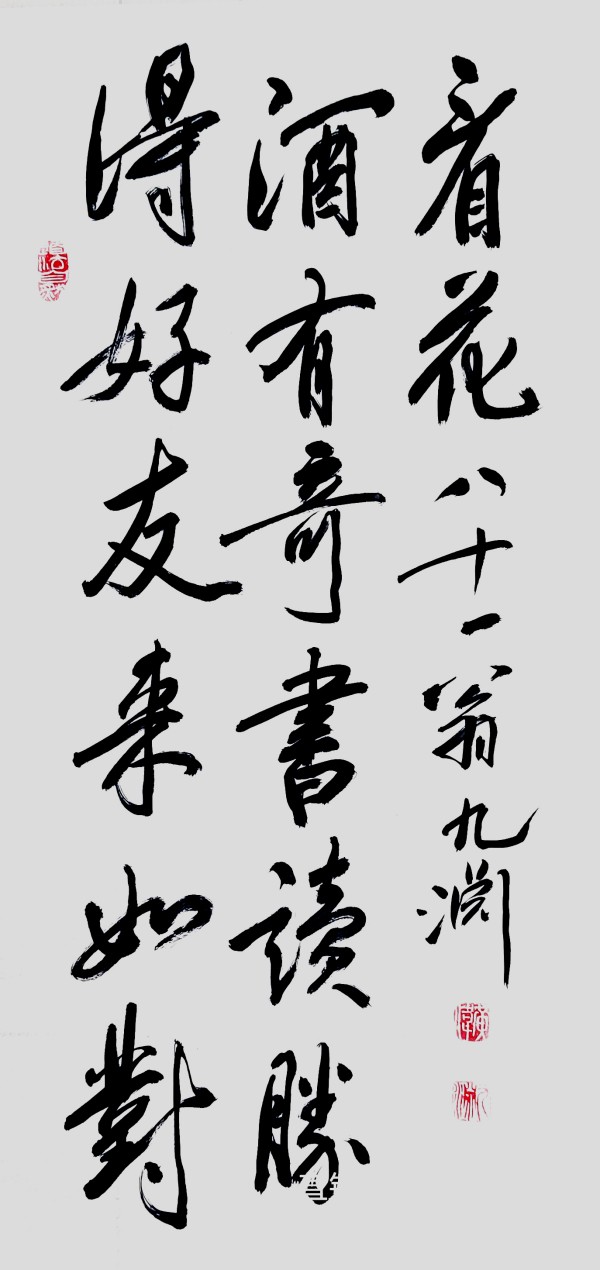 得好友來如對
酒有奇書讀勝
看花 八十一翁九淵